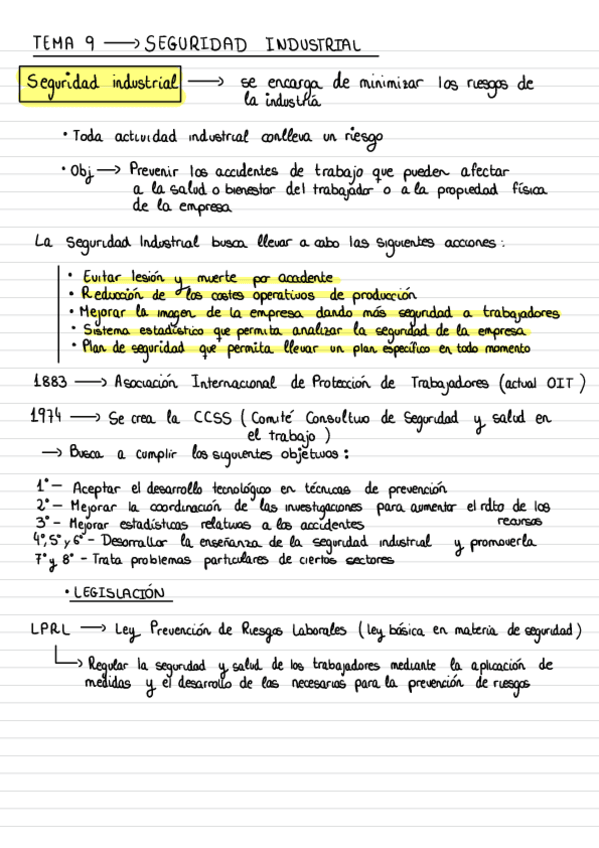 TEMA 9 → SEGURIDAD INDUSTRIAL
Seguridad industrial → se encarga de minimizar los riesgos de
la industria
• Toda actividad industrial conlleva un riesgo
• Obj → Prevenir los accidentes de trabajo que pueden afectar
a la salud o bienestar del trabajador o a la propiedad física
de la empresa
La Seguridad Industrial busca llevar a cabo las siguientes acciones:
• Evitar lesión y muerte por accidente
• Reducción de los costes operativos de producción
• Mejorar la imagen de la empresa dando más seguridad a trabajadores
• Sistema estadístico que permita analizar la seguridad de la empresa
• Plan de seguridad que permita llevar un plan específico en todo momento
1883 → Asociación Internacional de Protección de Trabajadores (actual OIT)
1974 → Se crea la CCSS (Comité Consultivo de Seguridad y salud en
el trabajo)
→ Busca a cumplir los siguientes objetivos:
1° — Aceptar el desarrollo tecnológico en técnicas de prevención
2° — Mejorar la coordinación de las investigaciones para aumentar el rdto de los
recursos
3° — Mejorar estadísticas relativas a los accidentes
4°, 5° y 6° — Desarrollar la enseñanza de la seguridad industrial y promoverla
7° y 8° — Trata problemas particulares de ciertos sectores
• LEGISLACIÓN
LPRL → Ley Prevención de Riesgos Laborales (ley básica en materia de seguridad)
→ Regular la seguridad y salud de los trabajadores mediante la aplicación de
medidas y el desarrollo de las necesarias para la prevención de riesgos